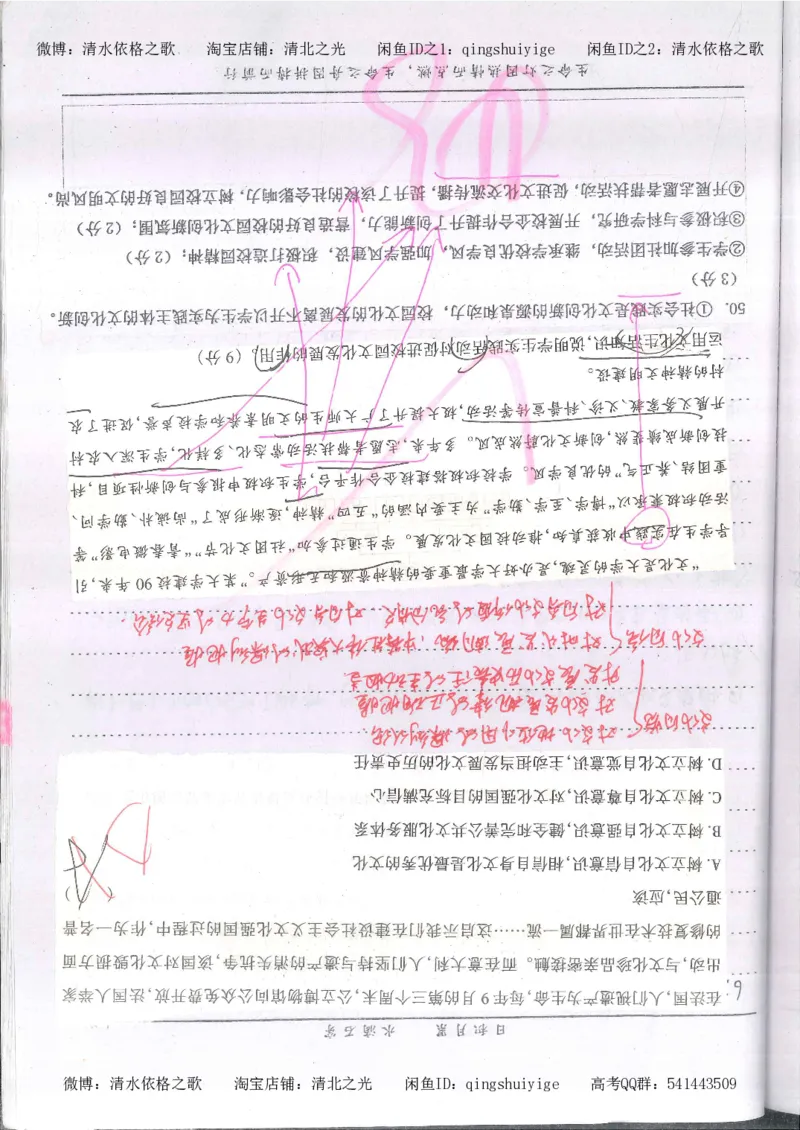 微博：清水依格之歌 淘宝店铺：清北之光 闲鱼ID之1：qingshuiyige 闲鱼ID之2：清水依格之歌
日积月累 水滴石穿
6.
在法国,人们视遗产为生命,每年9月的第三个周末,公立博物馆向公众免费开放,法国人举家
出动,与文化珍品亲密接触。而在意大利,人们坚持与遗产的消失抗争,该国对文化毁损方面
的修复技术在世界都属一流……这启示我们在建设社会主义文化强国的过程中,作为一名普
通公民,应该
A. 树立文化自信意识,相信自身文化是最优秀的文化
B. 树立文化自强意识,健全和完善公共文化服务体系
C. 树立文化自尊意识,对文化强国的目标充满信心
D. 树立文化自觉意识,主动担当发展文化的历史责任
D
文化自觉
对文化地位作用的深刻认识
对文化发展规律的正确把握
对发展文化历史责任的主动担当
文化自信
对时代发展潮流、中国特色伟大实践的深刻把握
对自身文化价值的充分肯定 对自身文化生命力的坚定信念
“文化是大学的灵魂,是办好大学最重要的精神资源和无形资产。”某大学建校90年来,引
导学生在实践中收获真知,推动校园文化发展。学生通过参加“社团文化节”“青春微电影”等
活动积极秉承以“博学、至学、勤学”为主要内涵的“五四”精神,逐渐形成了“尚诚朴、勤学问、
重团结、养正气”的优良学风。学校积极搭建校企合作平台,学生积极申报参与创新性项目,科
技创新成绩斐然,创新文化蔚然成风。多年来,志愿者帮扶活动常态化、多样化,学生深入农村
开展义务家教、义诊、科普宣传等活动,极大提升了广大师生的文明素养和学校声誉,促进了农
村的精神文明建设。
运用文化生活知识,说明学生实践活动对促进校园文化发展的作用。(9分)
50. ①社会实践是文化创新的源泉和动力，校园文化的发展离不开以学生为实践主体的文化创新。
（3分）
②学生参加社团活动，继承学校优良学风，加强学风建设，积极打造校园精神；（2分）
③积极参与科学研究，开展校企合作提升了创新能力，营造良好的校园文化创新氛围；（2分）
④开展志愿者帮扶活动，促进文化交流传播，提升了该校的社会影响力，树立校园良好的文明风尚。
生命之灯因热情而点燃，生命之舟因拼搏而前行
微博：清水依格之歌 淘宝店铺：清北之光 闲鱼ID：qingshuiyige 高考QQ群：541443509